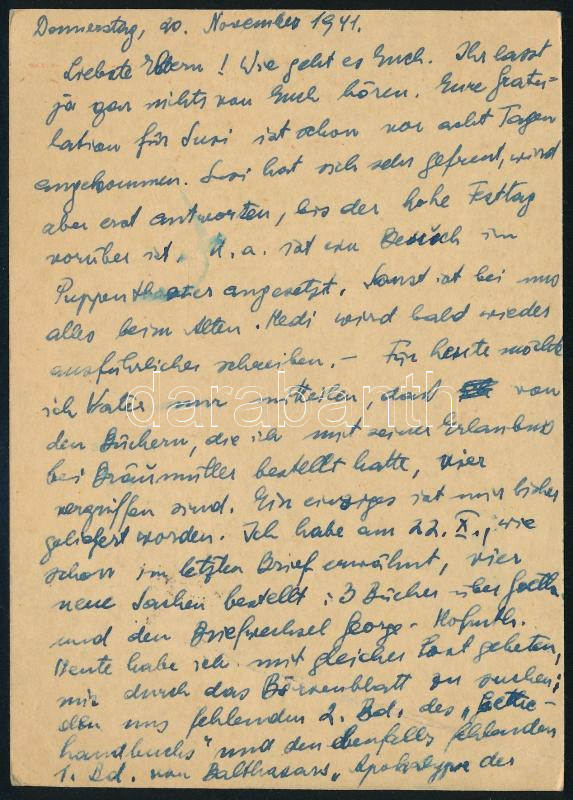 Donnerstag, 20. November 1941.
Liebste Eltern! Wie geht es Euch. Ihr lasst
ja gar nichts von Euch hören. Eure Gratu-
lation für Susi ist schon vor acht Tagen
angekommen. Susi hat sich sehr gefreut, wird
aber erst antworten, bis der hohe Festtag
vorüber ist. U. a. ist ein Besuch im
Puppentheater angesetzt. Sonst ist bei uns
alles beim Alten. Medi wird bald wieder
ausführlicher schreiben. – Für heute möchte
ich Vater nur mitteilen, dass von
den Büchern, die ich mit seiner Erlaubnis
bei Braumüller bestellt hatte, vier
vergriffen sind. Ein einziges ist mir bisher
geliefert worden. Ich habe am 22. X., wie
schon im letzten Brief erwähnt, vier
neue Sachen bestellt: 3 Bücher über Goethe
und den Briefwechsel George-Hofmth.
Heute habe ich mit gleicher Post gebeten,
mir durch das Börsenblatt zu suchen:
den uns fehlenden 2. Bd. des „Goethe-
handbuchs" und den ebenfalls fehlenden
1. Bd. von Balthasars „Apokalypse der
darabanth